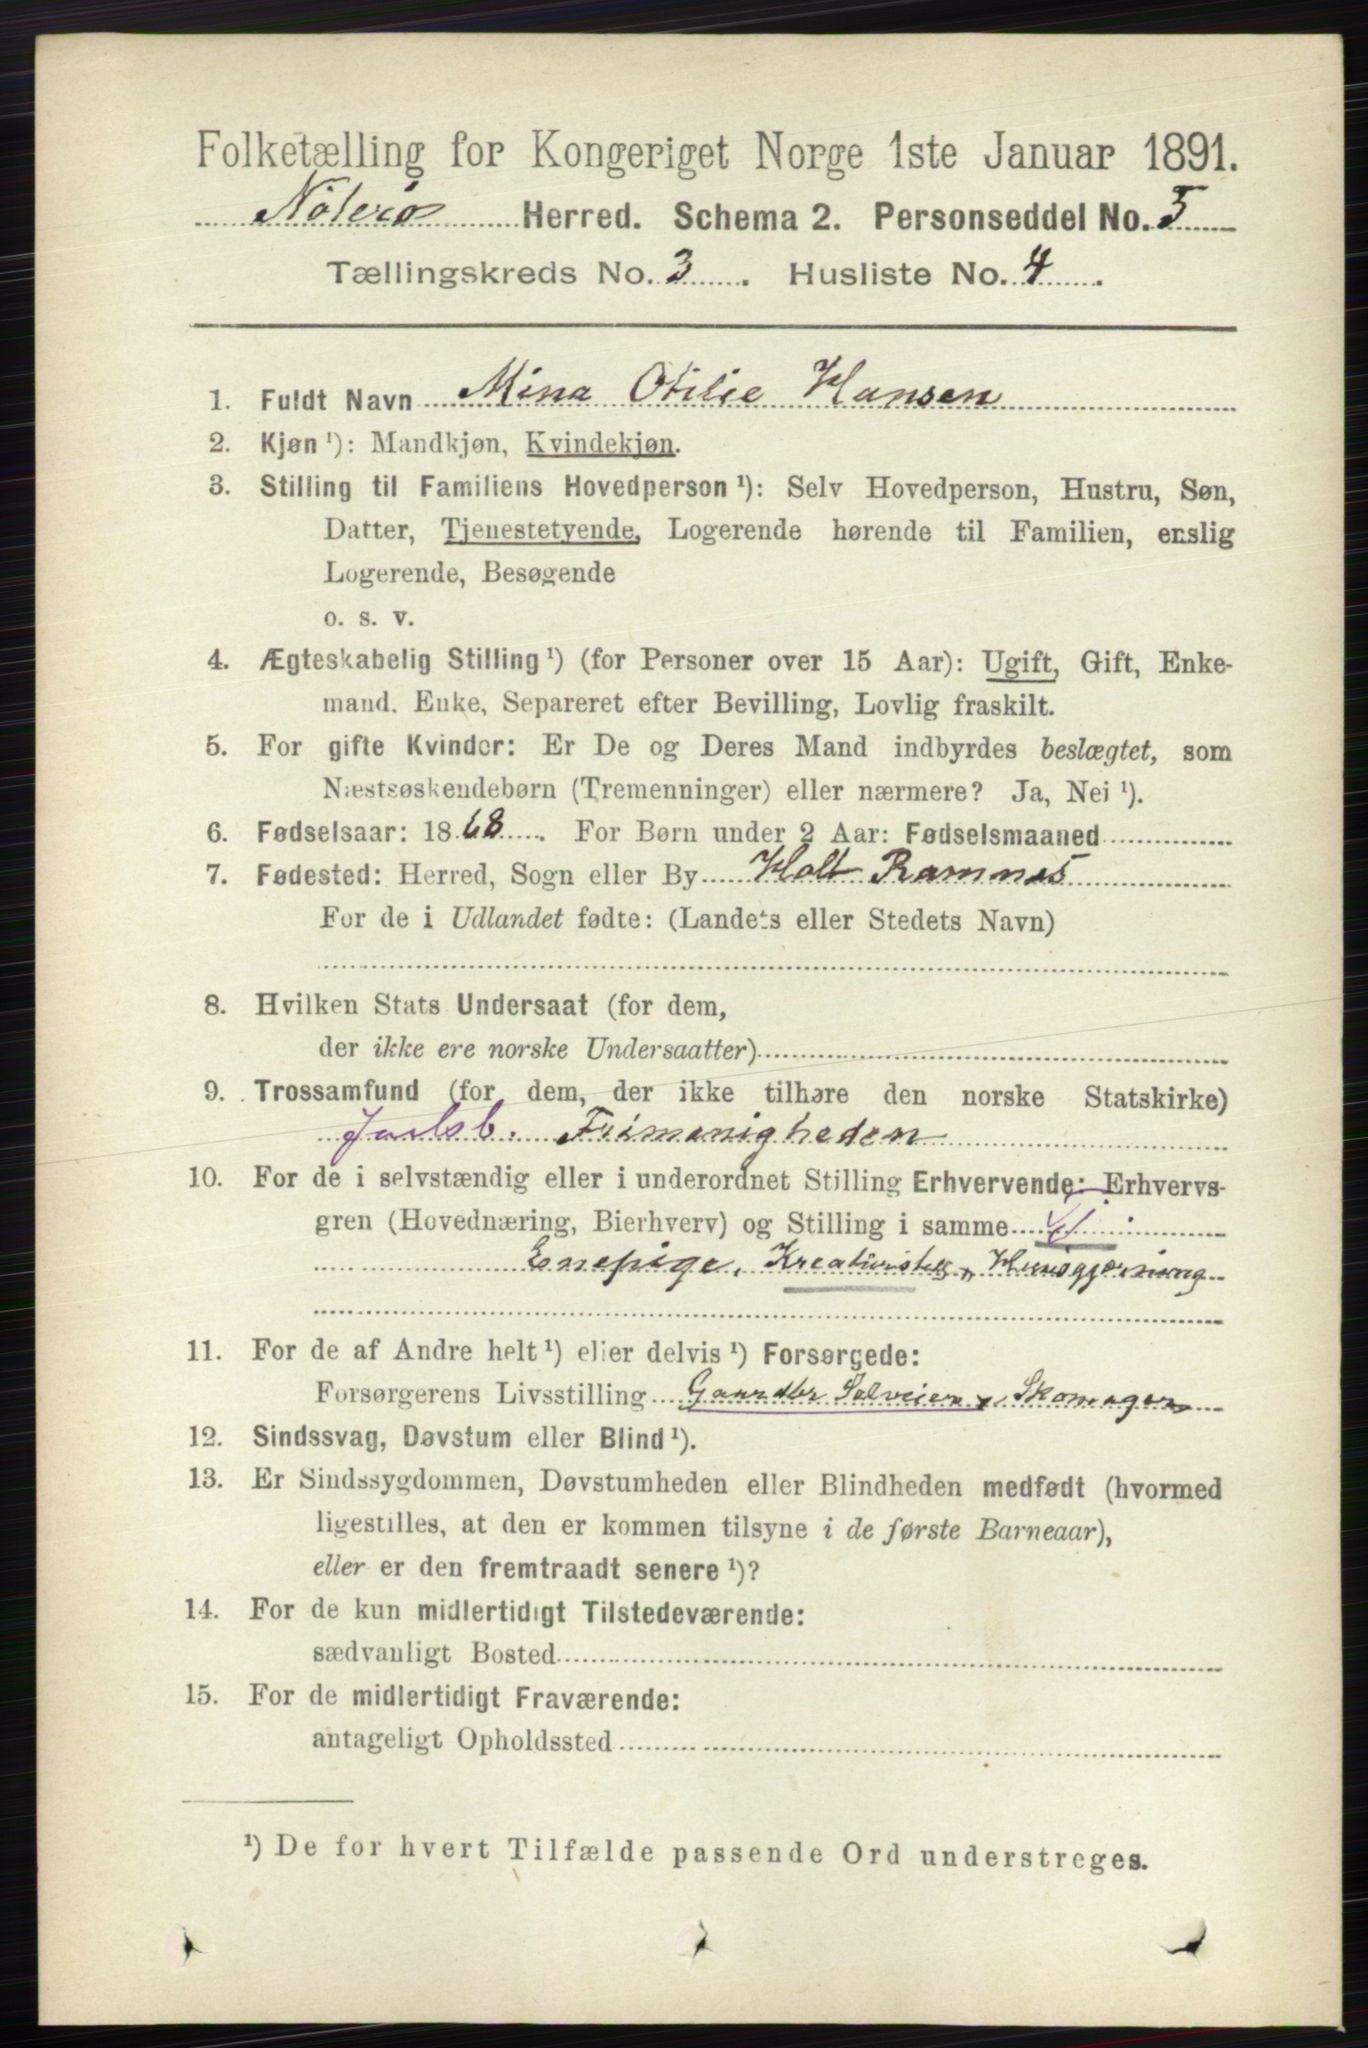 Folketælling for Kongeriget Norge 1ste Januar 1891.
Nøterø Herred. Schema 2. Personseddel No. 5
Tællingskreds No. 3. Husliste No. 4.
1. Fuldt Navn Mina Otilie Hansen
2. Kjøn ¹): Mandkjøn, Kvindekjøn.
3. Stilling til Familiens Hovedperson ¹): Selv Hovedperson, Hustru, Søn,
Datter, Tjenestetyende, Logerende hørende til Familien, enslig
Logerende, Besøgende
o. s. v.
4. Ægteskabelig Stilling ¹) (for Personer over 15 Aar): Ugift, Gift, Enke-
mand, Enke, Separeret efter Bevilling, Lovlig fraskilt.
5. For gifte Kvinder: Er De og Deres Mand indbyrdes beslægtet, som
Næstsøskendebørn (Tremenninger) eller nærmere? Ja, Nei ¹).
6. Fødselsaar: 1868. For Børn under 2 Aar: Fødselsmaaned
7. Fødested: Herred, Sogn eller By Holt Ramnes
For de i Udlandet fødte: (Landets eller Stedets Navn)
8. Hvilken Stats Undersaat (for dem,
der ikke ere norske Undersaatter)
9. Trossamfund (for dem, der ikke tilhøre den norske Statskirke)
Jarlsb. Frimenigheden
10. For de i selvstændig eller i underordnet Stilling Erhvervende: Erhvervs-
gren (Hovednæring, Bierhverv) og Stilling i samme
Enepige, Kreaturstel, Huusgjerning
11. For de af Andre helt ¹) eller delvis ¹) Forsørgede:
Forsørgerens Livsstilling Gaardbr Selveier, Skomager
12. Sindssvag, Døvstum eller Blind ¹).
13. Er Sindssygdommen, Døvstumheden eller Blindheden medfødt (hvormed
ligestilles, at den er kommen tilsyne i de første Barneaar),
eller er den fremtraadt senere ¹)?
14. For de kun midlertidigt Tilstedeværende:
sædvanligt Bosted
15. For de midlertidigt Fraværende:
antageligt Opholdssted
¹) De for hvert Tilfælde passende Ord understreges.